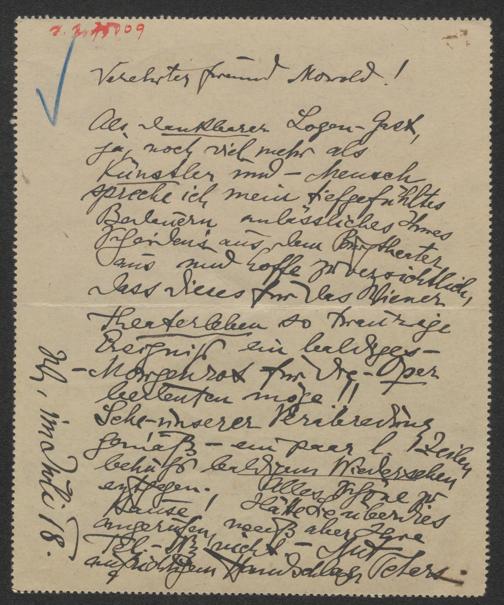 Verehrter Freund Morold!
Als dankbarer Logen-Gast,
ja, noch viel mehr als
Künstler und - Mensch
spreche ich mein tiefgefühltes
Bedauern anlässlich Ihres
Scheidens aus dem Burgtheater
aus und hoffe zuversichtlich,
dass dieses für das Wiener
Theaterleben so traurige
Ereigniß ein baldiges -
- Morgenrot für die - Oper
bedeuten möge!!
Sehe unserer Verabredung
gemäß - ein paar l. Zeilen
behufs baldigem Wiedersehen
entgegen. Alles Schöne zu
Hause! Hätte überdies
angerufen, weiß aber Ihre
Tel- Nr nicht - Mit
aufrichtigem Handschlag Peters.
Juli 18.